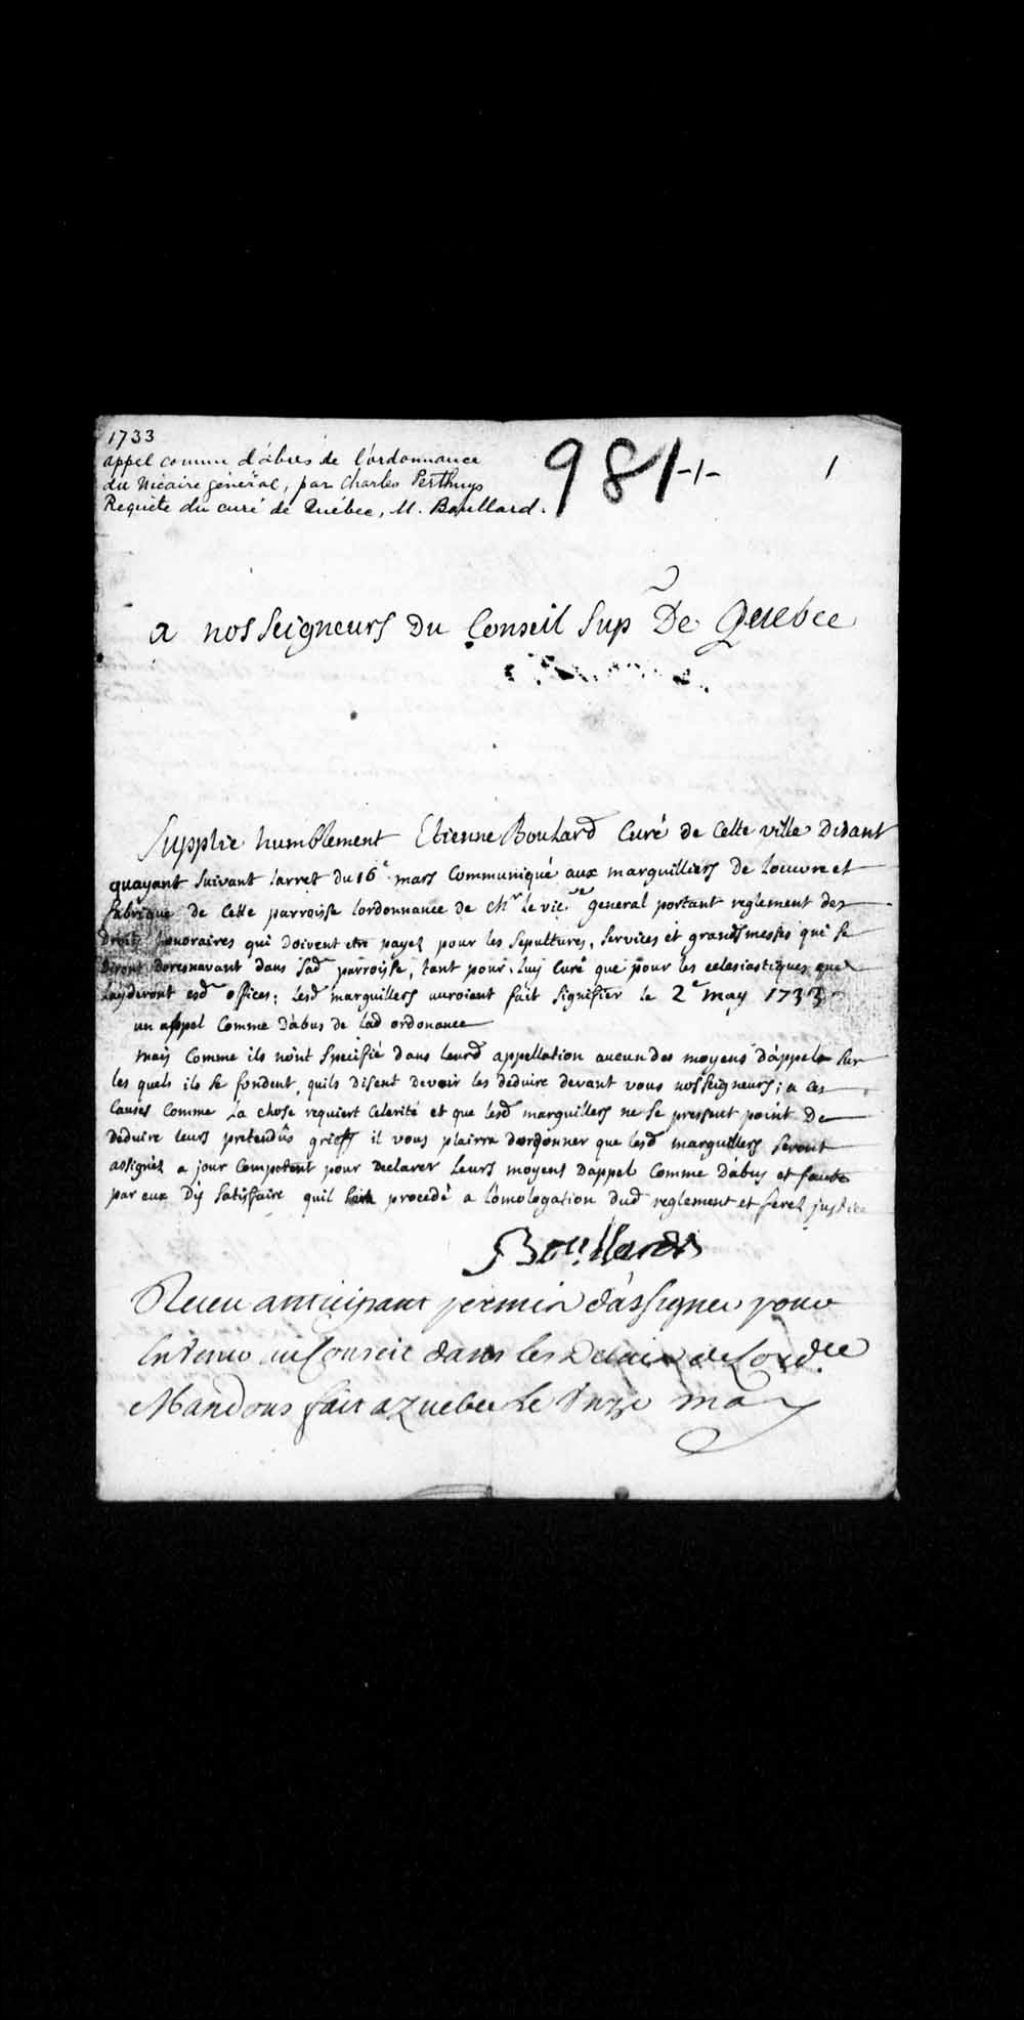 1733
appel comme d'abus de l'ordonnance
du Vicaire général, par Charles Perthuys
Requête du curé de Québec, M. Boullard.
981-1-
1
a nosseigneurs Du Conseil Sup De Quebec
Supplie humblement Etienne Boulard Curé de Cette ville Disant
quayant Suivant larret du 16e mars Communiqué aux marguilliers de loeuvre et
fabrique de Cette parroisse lordonnance de Mr le vic. general portant reglement des
droits honoraires qui doivent etre payez pour les Sepultures, Services et grandsmesses qui Se
diront doresnavant dans Sad parroisse, tant pour luy Curé que pour les eclesiastiques qui
layderont esd offices; Lesd marguillers auroient fait Signifier le 2e may 1733
un appel Comme dabus de lad ordonance
mais Comme ils n'ont Specifié dans leurd appellation aucun des moyens dappels Sur
les quels ils Se fondent, quils disent devoir les deduire devant vous nosseigneurs; a Ces
Causes Comme La chose requiert Celerité et que lesd marguillers ne Se pressent point De
Deduire leurs pretendûs griefs il vous plairra dordonner que lesd marguillers Seront
assignés a jour Competent pour Declarer Leurs moyens Dappel Comme Dabus et faute
par eux D'y Satisfaire quil Soit procedé a l'omologation dud reglement et ferez justice
Boullard
Receu anticipant permis d'assigner pour
en venir au Conseil dans les Delais de Lordce
Mandons fait a Quebec Le onze may